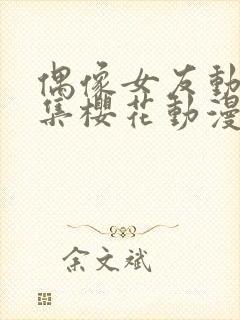 偶像女友動
集櫻花動漫
余文斌